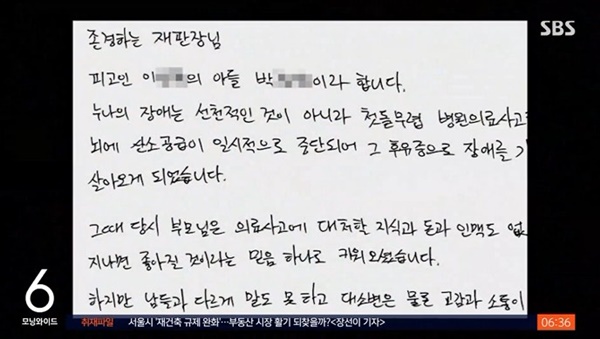 SBS
존경하는 재판장님
피고인 이 의 아들 박 이라 합니다.
누나의 장애는 선천적인 것이 아니라 첫돌무렵 병원의료사고
뇌에 산소공급이 일시적으로 중단되어 그 후유증으로 장애를
살아오게 되었습니다.
그때 당시 부모님은 의료사고에 대처할 지식과 돈과 인맥도
지나면 좋아질 것이라는 믿음 하나로 키워오셨습니다.
하지만 남들과 다르게 말도 못 하고 대소변은 물론 교감과 소통이
6
모닝와이드
취재파일 서울시 '재건축 규제 완화'…부동산 시장 활기 되찾을까?<장선이 기자>
06:36